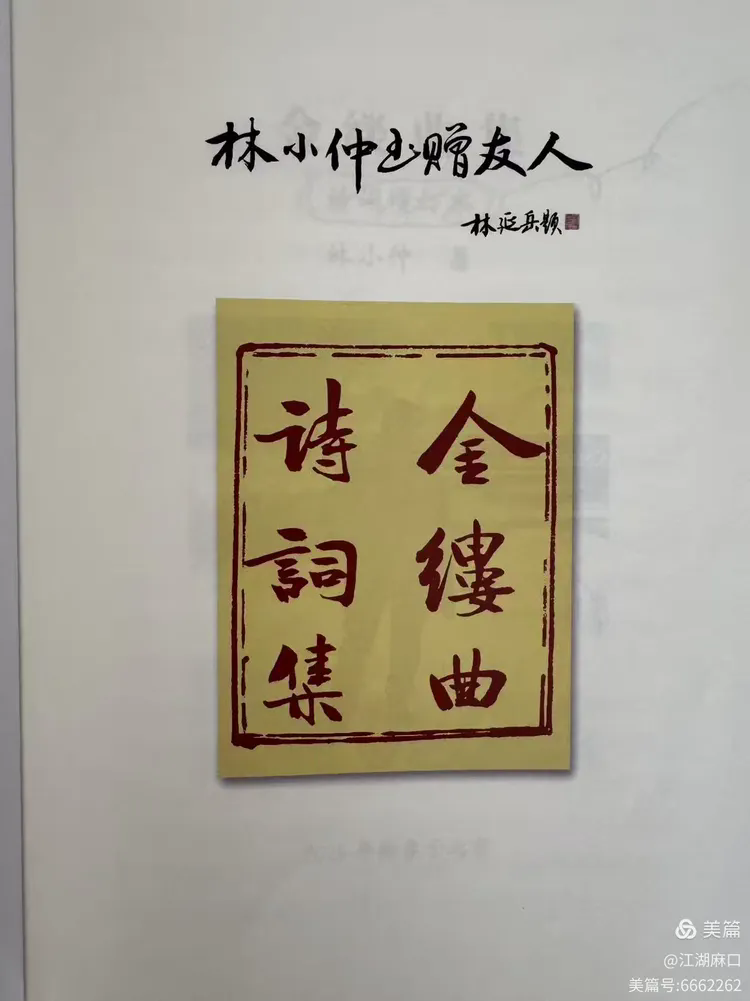 林小仲玉赠友人
林延兵题
金缕曲
詩詞集
林小仲 著
美篇
@江湖麻口
美篇号:6662262